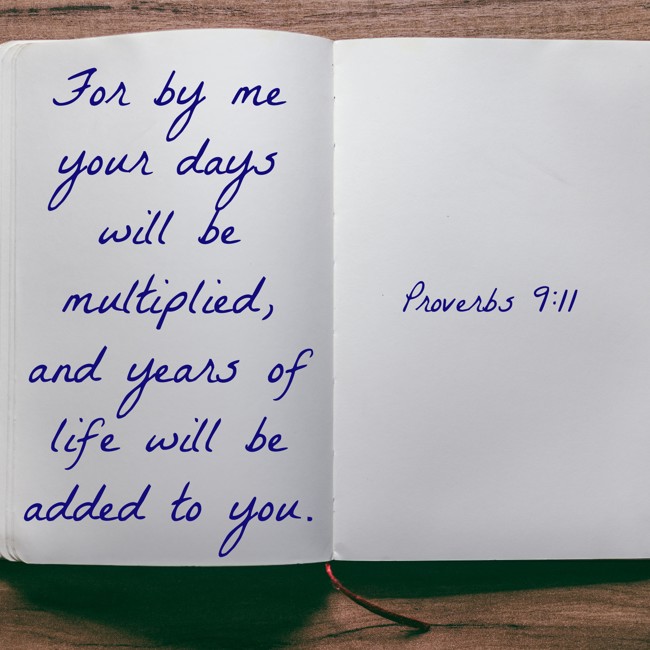 For by me
your days
will be
multiplied,
and years of
life will be
added to you.
Proverbs 9:11